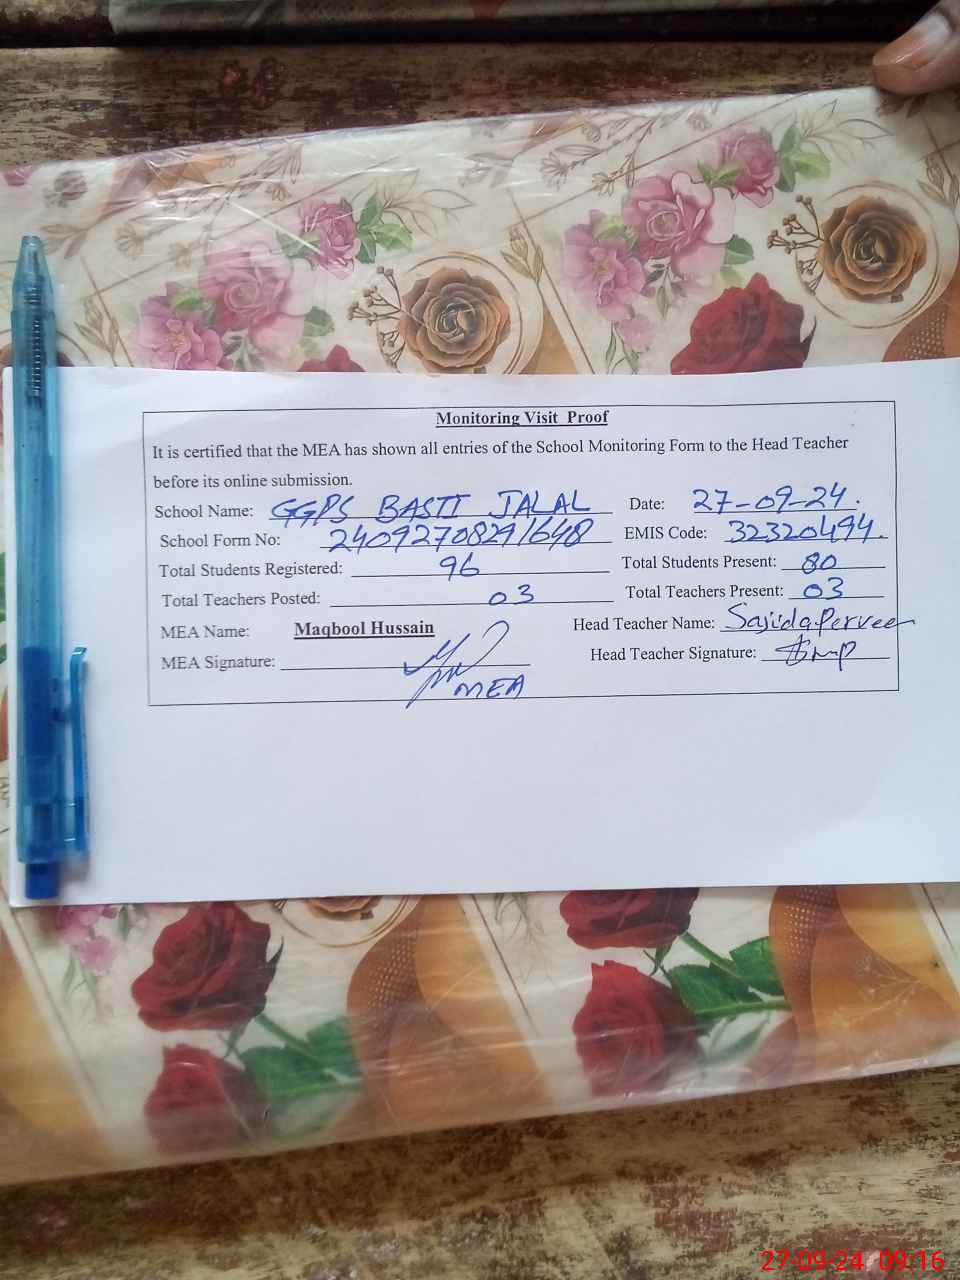 Monitoring Visit Proof
It is certified that the MEA has shown all entries of the School Monitoring Form to the Head Teacher
before its online submission.
School Name: GGPS BASTI JALAL Date: 27-09-24.
School Form No: 24092708291648 EMIS Code: 32320494.
Total Students Registered: 96 Total Students Present: 80
Total Teachers Posted: 03 Total Teachers Present: 03
MEA Name: Maqbool Hussain Head Teacher Name: Sajida Perveen
MEA Signature: Head Teacher Signature:
MEA
27-09-24 09:16